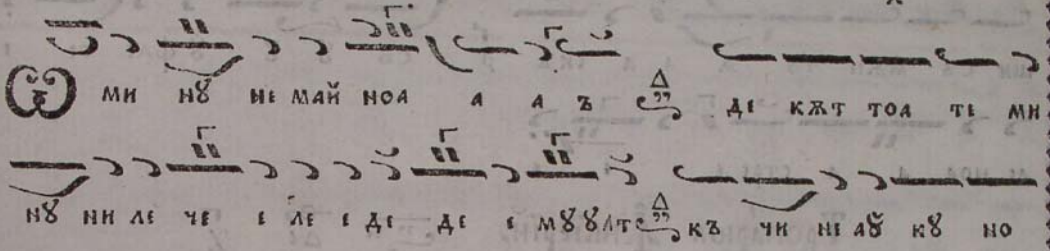 Ѿ ми нꙋ не май ноа а а ъ де кѫт тоа те ми
нꙋ ни ле че е ле е де де е мꙋꙋлте къ чи не аꙋ кꙋ но